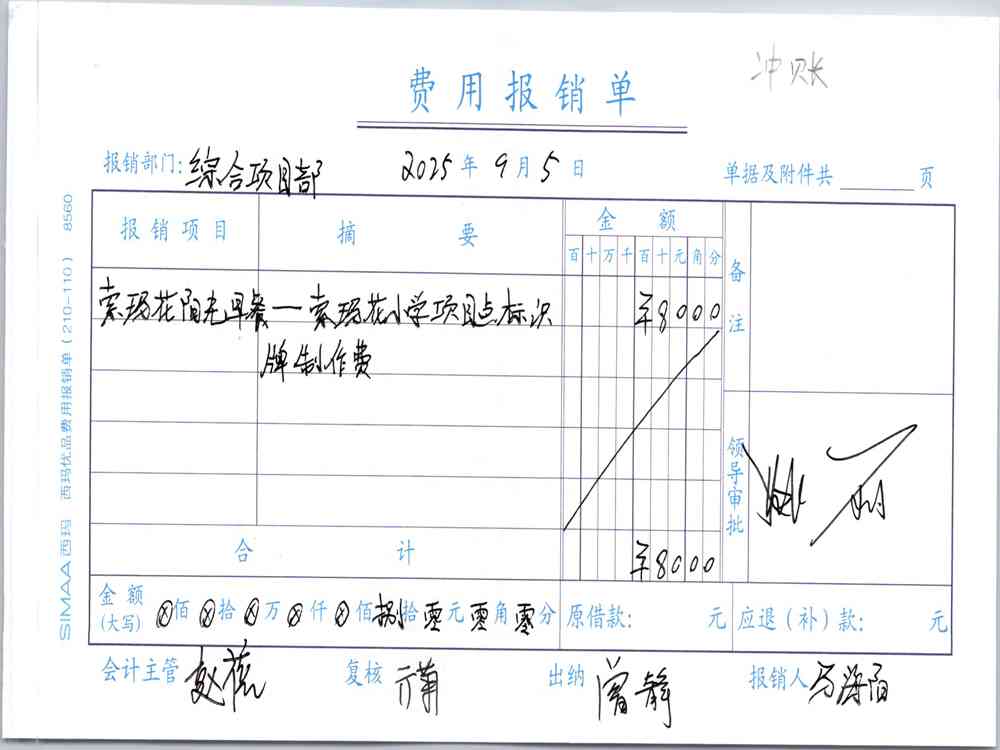 冲账
费用报销单
报销部门:综合项目部 2025年9月5日 单据及附件共 页
报销项目 摘要 金额 备注
百十万千百十元角分
索玛花阳光早餐—索玛花小学项目点标识 ¥8000
牌制作费
领导审批
合计 ¥8000
金额(大写) ⊗佰⊗拾⊗万⊗仟⊗佰捌拾零元零角零分 原借款: 元 应退(补)款: 元
会计主管 复核 出纳 曾静 报销人 马海阳
SIMAA西玛 西玛优品费用报销单(210-110) 8560